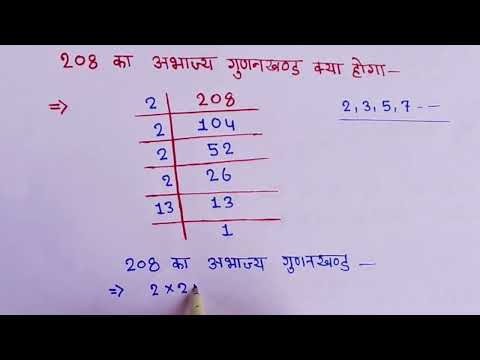 208 का अभाज्य गुणनखण्ड क्या होगा—
⇒ 2 | 208 2, 3, 5, 7 --
2 | 104
2 | 52
2 | 26
13 | 13
1
208 का अभाज्य गुणनखण्ड —
⇒ 2 × 2 ×